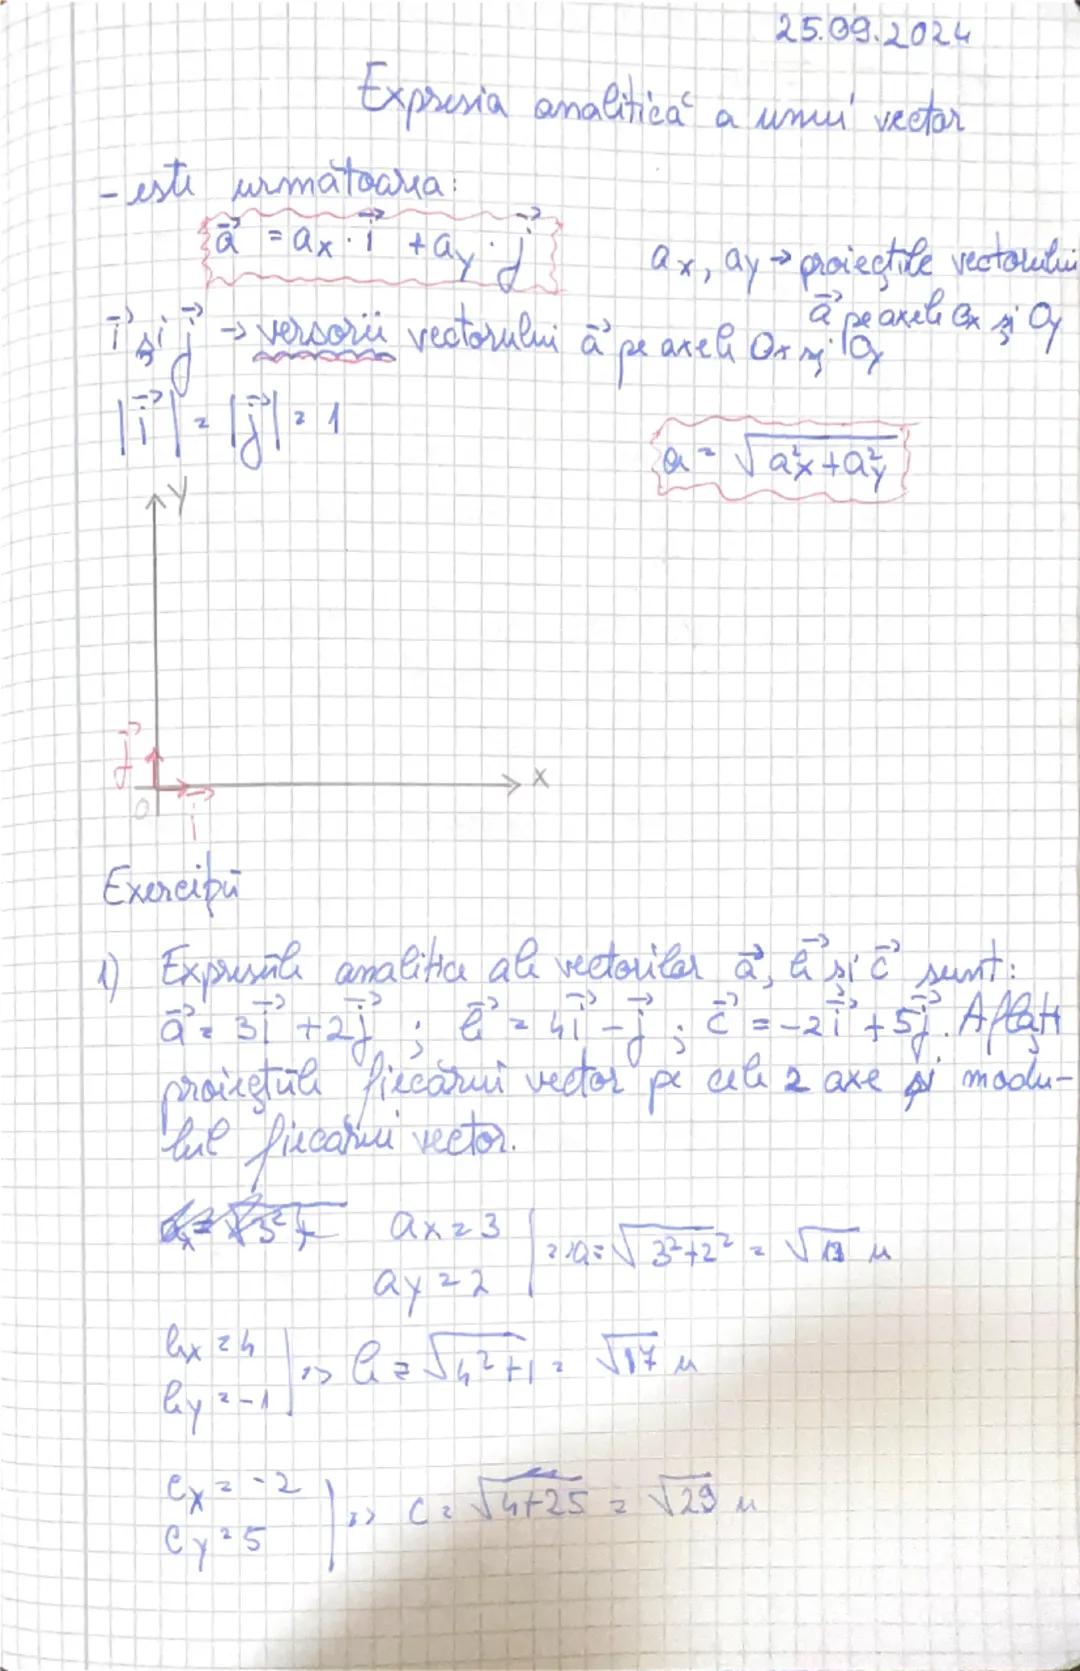 25.09.2024
Expresia analitică a unui vector
- este următoarea:
a⃗ = ax · i⃗ + ay · j⃗
ax, ay → proiecțiile vectorului
a⃗ pe axele Ox și Oy
i⃗ și j⃗ → versorii vectorului a⃗ pe axele Ox și Oy
|i⃗| = |j⃗| = 1
a = √(a²x + a²y)
y
j⃗
O
i⃗
x
Exerciții
1) Expresiile analitice ale vectorilor a⃗, b⃗ și c⃗ sunt:
a⃗ = 3i⃗ + 2j⃗ ; b⃗ = 4i⃗ - j⃗ ; c⃗ = -2i⃗ + 5j⃗. Aflați
proiecțiile fiecărui vector pe cele 2 axe și modu-
lul fiecărui vector.
ax = 3
ay = 2 => a = √(3² + 2²) = √13 u
bx = 4
by = -1 => b = √(4² + 1) = √17 u
cx = -2
cy = 5 => c = √(4 + 25) = √29 u